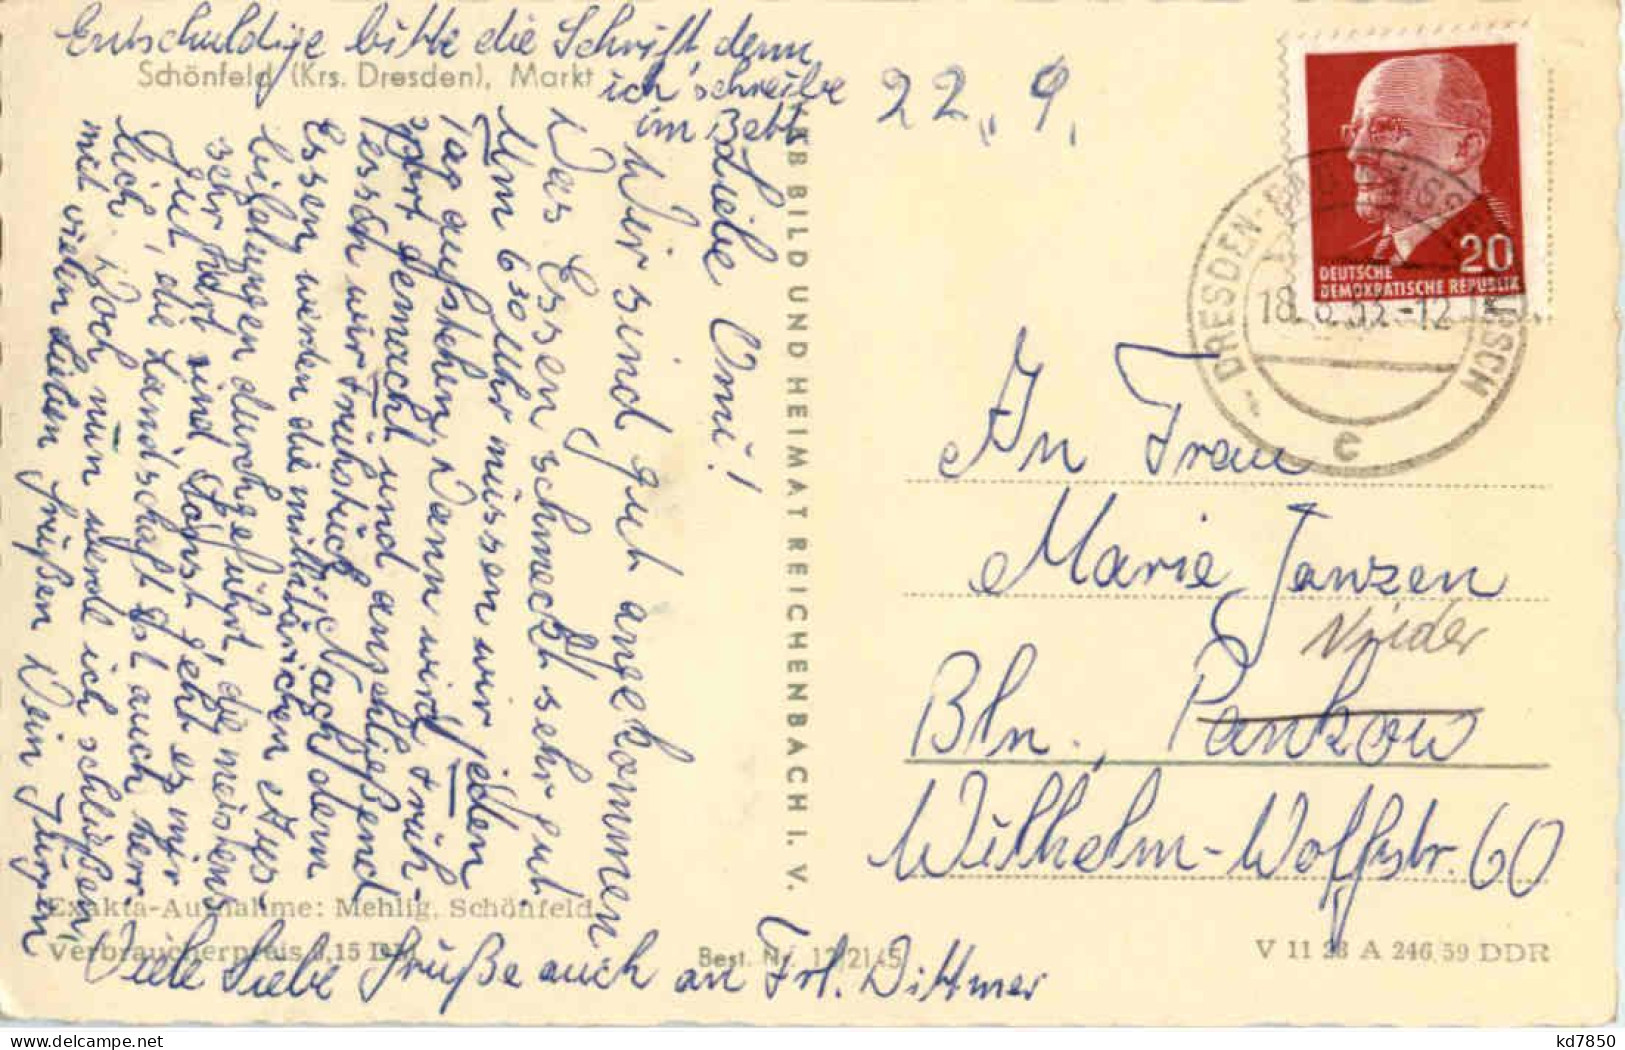 Entschuldige bitte die Schrift, denn
ich schreibe
im Bett
Schönfeld (Krs. Dresden), Markt
22. 9.
Liebe Omi!
Wir sind gut angekommen
Das Essen schmeckt sehr gut.
Um 6 30 Uhr müssen wir jeden
Tag aufstehen, Dann wird Früh-
sport gemacht und anschließend
essen wir Frühstück. Nach dem
Essen, werden die militärischen Aus-
bildungen durchgeführt, die meistens
sehr hart sind, sonst geht es mir
gut, die Landschaft ist auch herr-
lich. Doch nun werde ich schließen,
mit vielen lieben Grüßen Dein Jürgen
Viele liebe Grüße auch an Frl. Dittmer
VEB BILD UND HEIMAT REICHENBACH I. V.
Exakta-Aufnahme: Mehlig, Schönfeld
Verbraucherpreis 0,15 DM
Best. Nr. 12/2145
V 11 28 A 246/59 DDR
20
DEUTSCHE
DEMOKRATISCHE REPUBLIK
DRESDEN-BAD
18. 6. -12
c
An Frau
Marie Janzen
Bln., Pankow
Wilhelm-Wolffstr. 60
kd7850